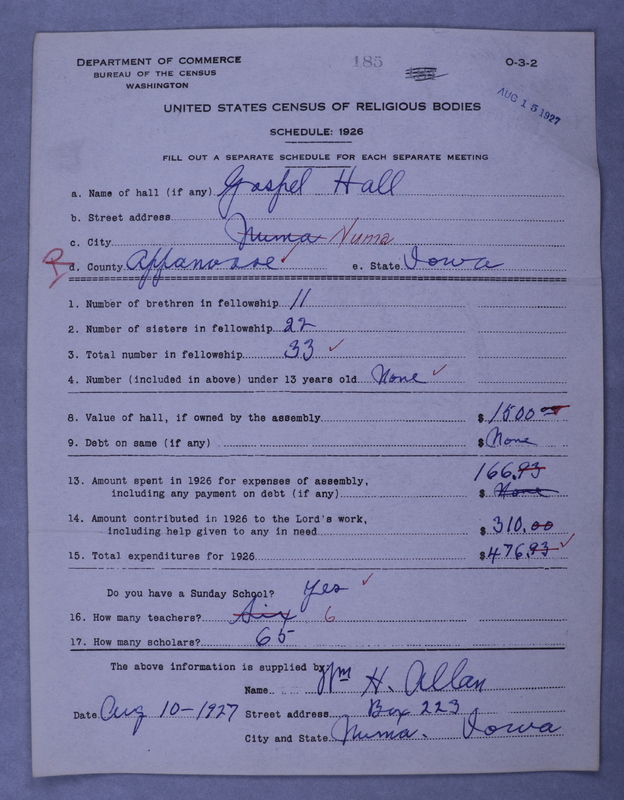 DEPARTMENT OF COMMERCE
BUREAU OF THE CENSUS
WASHINGTON
185
O-3-2
AUG 15 1927
UNITED STATES CENSUS OF RELIGIOUS BODIES
SCHEDULE: 1926
FILL OUT A SEPARATE SCHEDULE FOR EACH SEPARATE MEETING
a. Name of hall (if any) Gospel Hall
b. Street address
c. City Numa Numa
d. County Appanoose e. State Iowa
1. Number of brethren in fellowship 11
2. Number of sisters in fellowship 22
3. Total number in fellowship 33
4. Number (included in above) under 13 years old None
8. Value of hall, if owned by the assembly $ 1500
9. Debt on same (if any) $ None
13. Amount spent in 1926 for expenses of assembly, 166.93
including any payment on debt (if any) $ None
14. Amount contributed in 1926 to the Lord's work,
including help given to any in need $ 310.00
15. Total expenditures for 1926 $ 476.93
Do you have a Sunday School? yes
16. How many teachers? Six 6
17. How many scholars? 65
The above information is supplied by:
Name H. Allan
Date Aug 10-1927 Street address Box 223
City and State Numa. Iowa